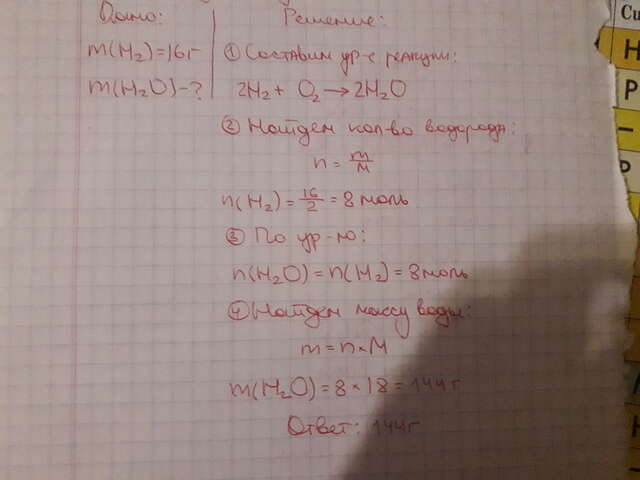 Дано:
Решение:
m(H₂)=16г
m(H₂O)-?
① Составим ур-е реакции:
2H₂ + O₂ → 2H₂O
② Найдем кол-во водорода:
n = m/M
n(H₂) = 16/2 = 8 моль
③ По ур-ю:
n(H₂O) = n(H₂) = 8 моль
④ Найдем массу воды:
m = n × M
m(H₂O) = 8 × 18 = 144 г
Ответ: 144г
Си
Н
Р
–
Р